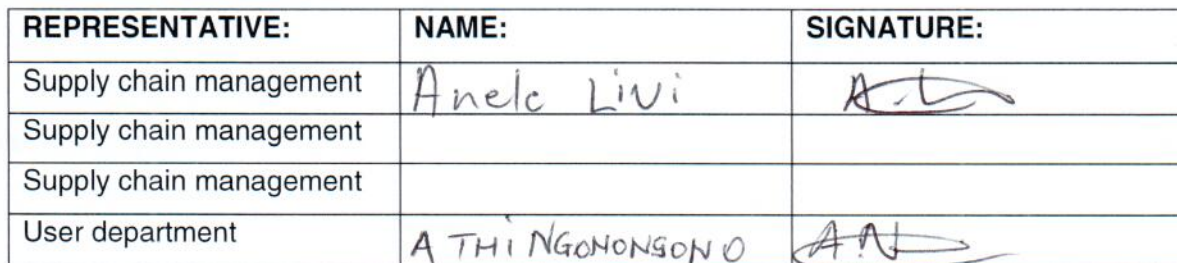 REPRESENTATIVE: NAME: SIGNATURE:
Supply chain management Anele Livi A.L
Supply chain management
Supply chain management
User department ATHI NGONONGONO A.N